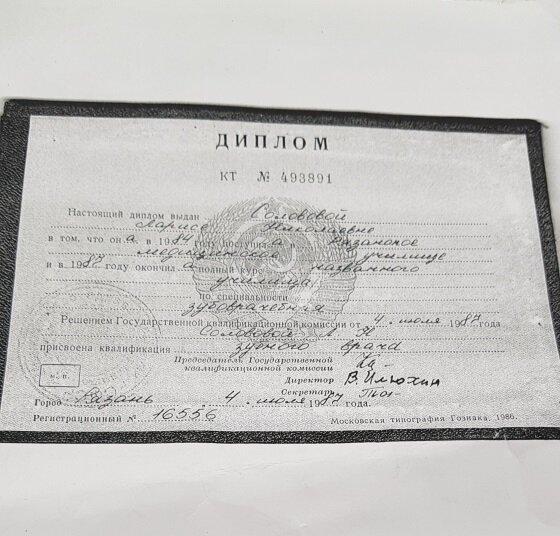 ДИПЛОМ
КТ № 493891
Настоящий диплом выдан Солововой
Ларисе Николаевне
в том, что она в 1984 году поступила в Рязанское
медицинское училище
и в 1987 году окончила полный курс названного
училища
по специальности
зубоврачебная
Решением Государственной квалификационной комиссии от 4 июля 1987 года
Солововой Л Н
присвоена квалификация зубного врача
Председатель Государственной
квалификационной комиссии
Директор В.Илюхин
Секретарь
м. п.
Город Рязань 4 июля 1987 года.
Регистрационный № 16556
Московская типография Гознака. 1986.